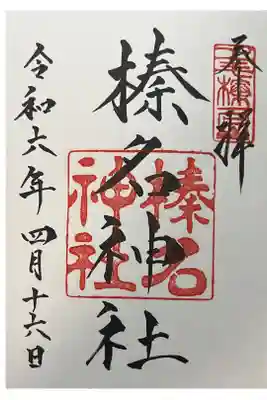 奉拝
榛名神社
令和六年四月十六日
榛名
神社